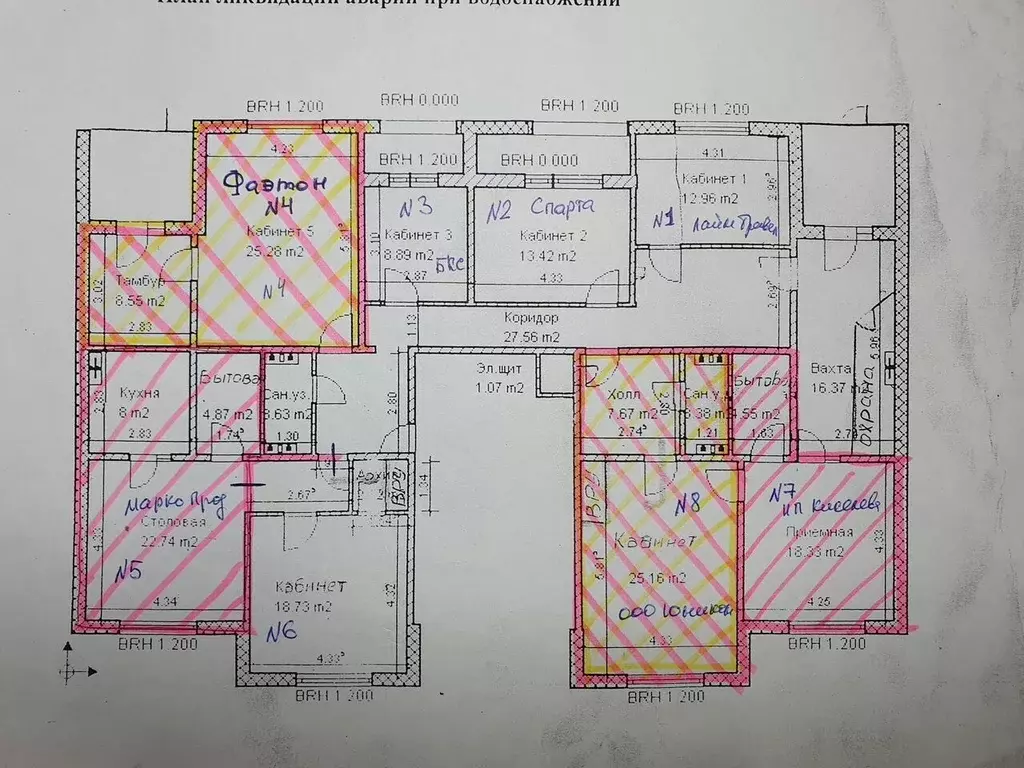 План ликвидации аварии при водоснабжении
BRH 1 200
BRH 0.000
BRH 1 200
BRH 1 200
BRH 1 200
BRH 0.000
4.23
Фаэтон
N4
Кабинет 5
25.28 m2
N4
5.81⁵
Тамбур
8.55 m2
3.02
2.83
N3
Кабинет 3
8.89 m2
БКС
2.87
3.10
N2 Спарта
Кабинет 2
13.42 m2
4.33
4.31
Кабинет 1
12.96 m2
2.96⁵
N1
Коридор
27.56 m2
1.13
2.69⁵
Эл.щит
1.07 m2
Вахта
16.37 m2
5.96
охрана
Кухня
8 m2
2.83
Бытова
4.87 m2
1.74⁵
Сан.уз.
3.63 m2
1.30
2.80
Холл
7.67 m2
2.74⁵
2.80
Сан.у
3.38 m2
1.21
Бытова
4.55 m2
1.63
Марко Прод
Столовая
22.74 m2
N5
4.33
4.34
2.67⁵
ВРУ
1.34
Кабинет
18.73 m2
N6
4.32
4.33⁵
ВРУ
N8
Кабинет
25.16 m2
5.81⁵
4.33
N7
ип Киселева
Приемная
18.33 m2
4.33
4.25
BRH 1 200
BRH 1 200
BRH 1 200
BRH 1.200